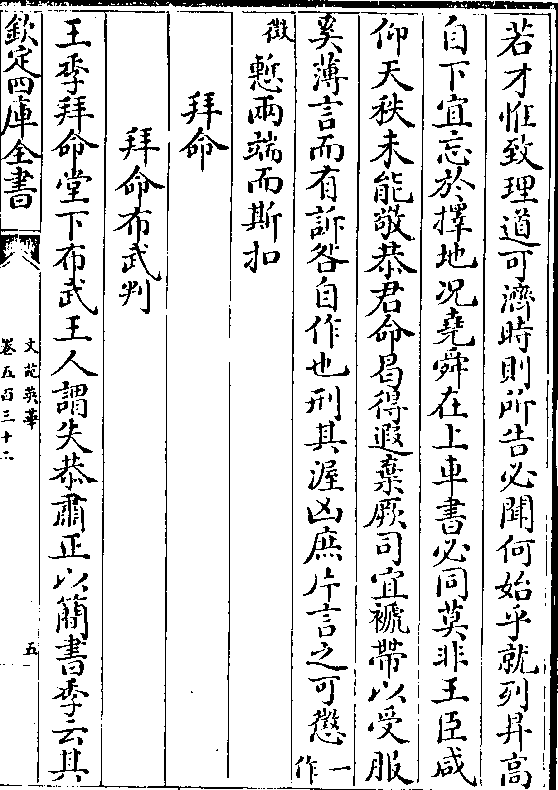 若才惟致理道可濟時則所告必聞何始乎就列昇高
自下宜忘於擇地况堯舜在上車書必同莫非王臣咸
仰天秩未能敬恭君命曷得遐棄厥司宜褫帶以受服
奚薄言而有訴咎自作也刑其渥凶庶片言之可懲一作
徵慙兩端而斯扣
拜命
拜命布武判
王季拜命堂下布武王人謂失恭肅正以簡書季云其
欽定四庫全書
文苑英華
卷五百三十二
五